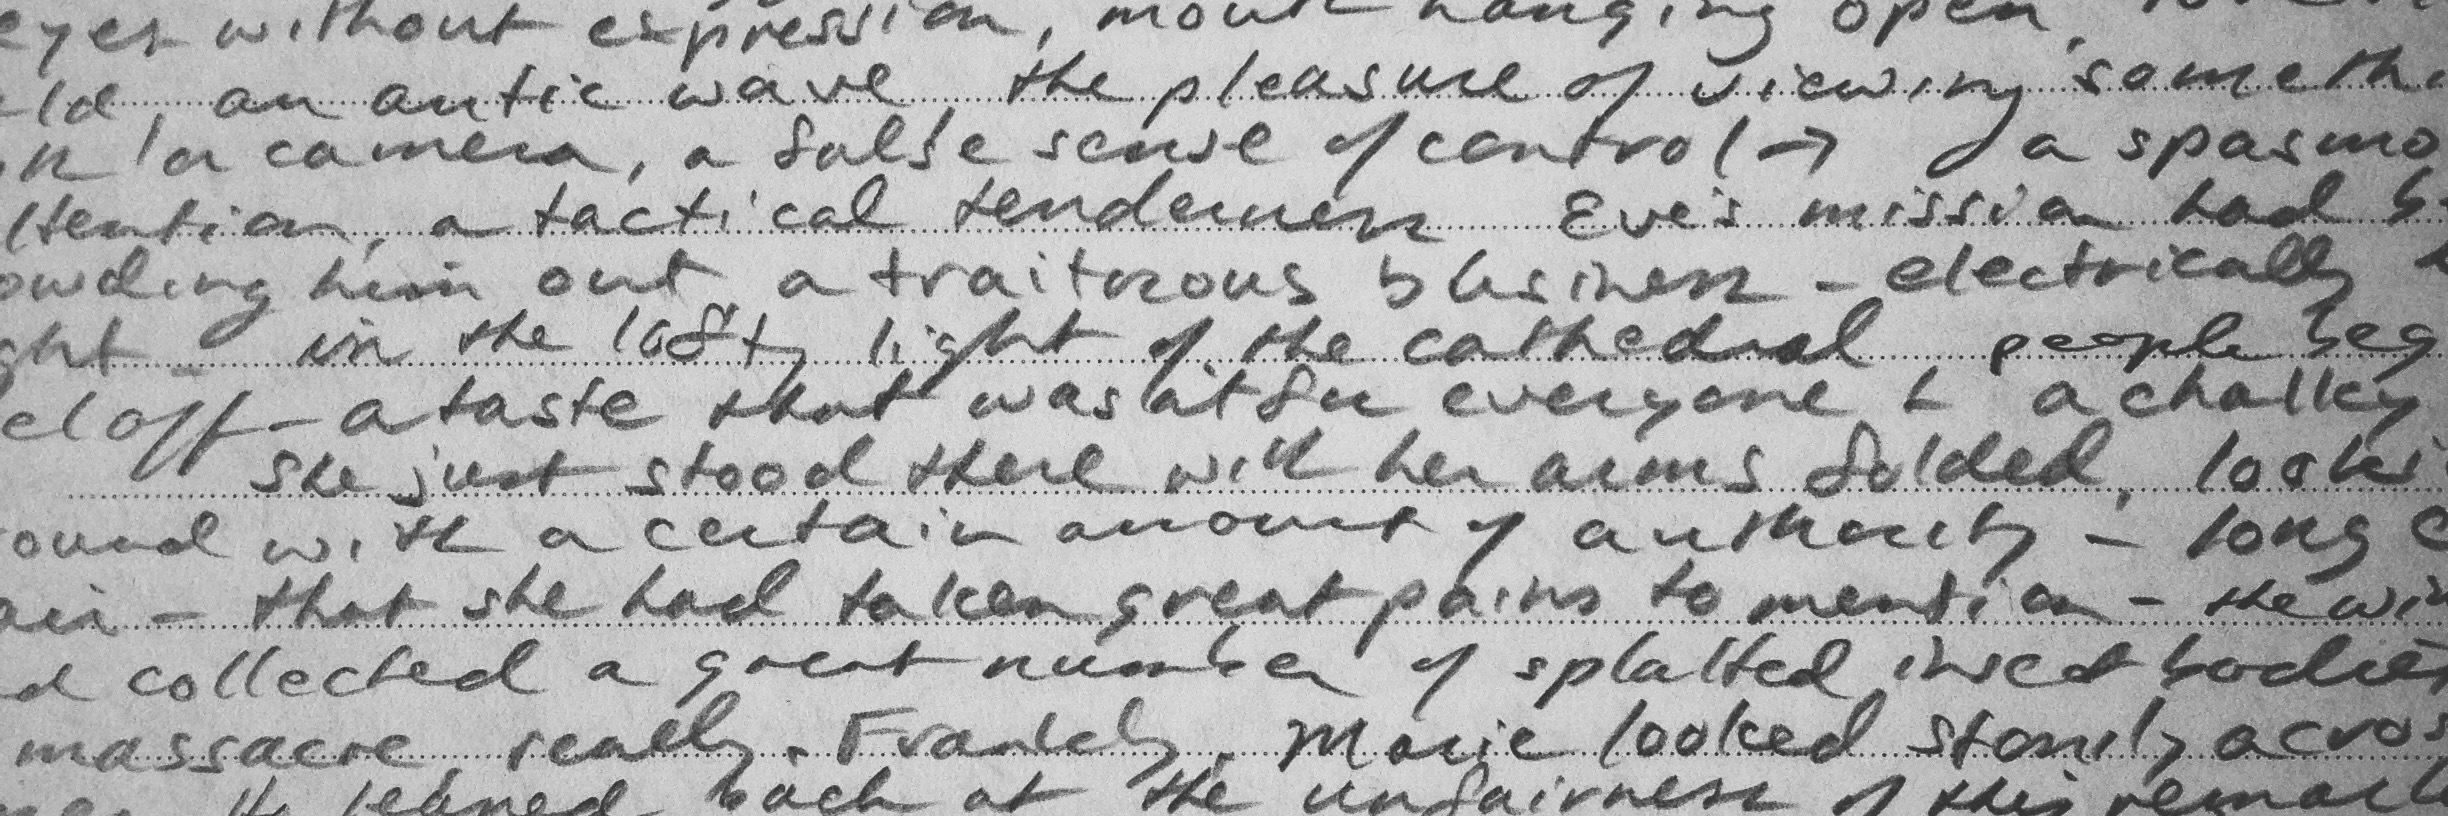 eyes without expression, mouth hanging open,
eld, an antic wave the pleasure of viewing someth
in a camera, a false sense of control → a spasmo
ttention, a tactical tenderness Eve's mission had b
owding him out a traitorous business - electrically
ght - in the lofty light of the cathedral people beg
el off - a taste that was out for everyone a chalky
She just stood there with her arms folded, looki
ound with a certain amount of authority - long
air - that she had taken great pains to mention - the win
d collected a great number of splatted insect bodies
massacre, really. Frankly, Marie looked stonily across
leaned back at the unfairness of this remark